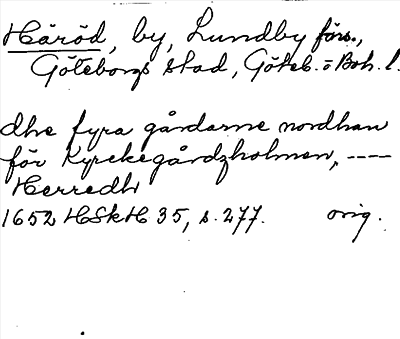 Häröd, by, Lundby förs.,
Göteborgs stad, Göteb. o Boh. l.
dhe fyra gårdarne nordhan
för Kyrckegårdzholmen, ----
Herredh
1652 HSkH 35, s. 277. orig.